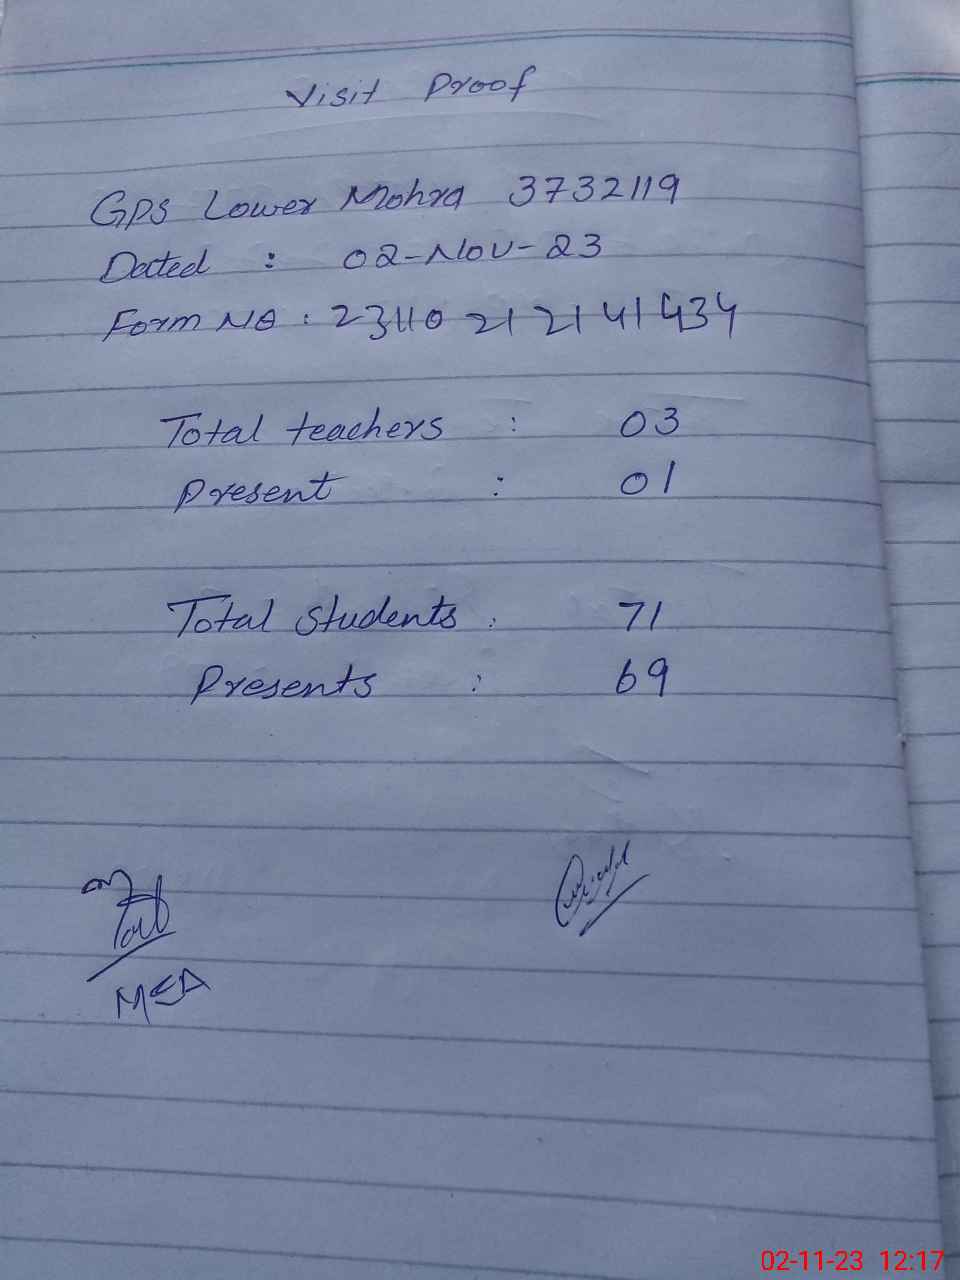 Visit Proof
GPS Lower Mohra 3732119
Dated : 02-Nov-23
Form NO : 23110 21 21 41 434
Total teachers : 03
Present : 01
Total students : 71
Presents : 69
MEA
02-11-23 12:17